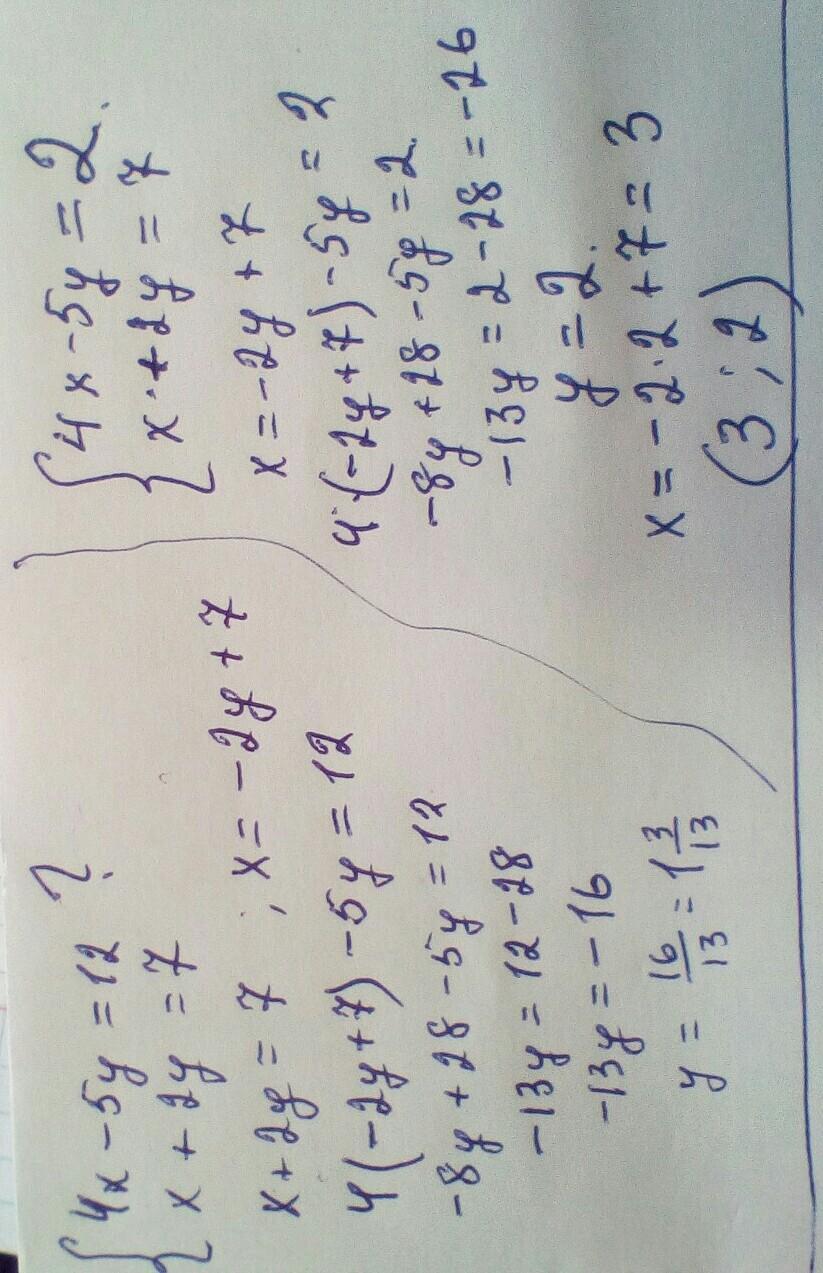 {4x - 5y = 12 ?
x + 2y = 7
x + 2y = 7 ; x = -2y + 7
4(-2y + 7) - 5y = 12
-8y + 28 - 5y = 12
-13y = 12 - 28
-13y = -16
y = 16/13 = 1 3/13
{4x - 5y = 2.
x + 2y = 7
x = -2y + 7
4·(-2y + 7) - 5y = 2
-8y + 28 - 5y = 2.
-13y = 2 - 28 = -26
y = 2.
x = -2·2 + 7 = 3
(3 ; 2)